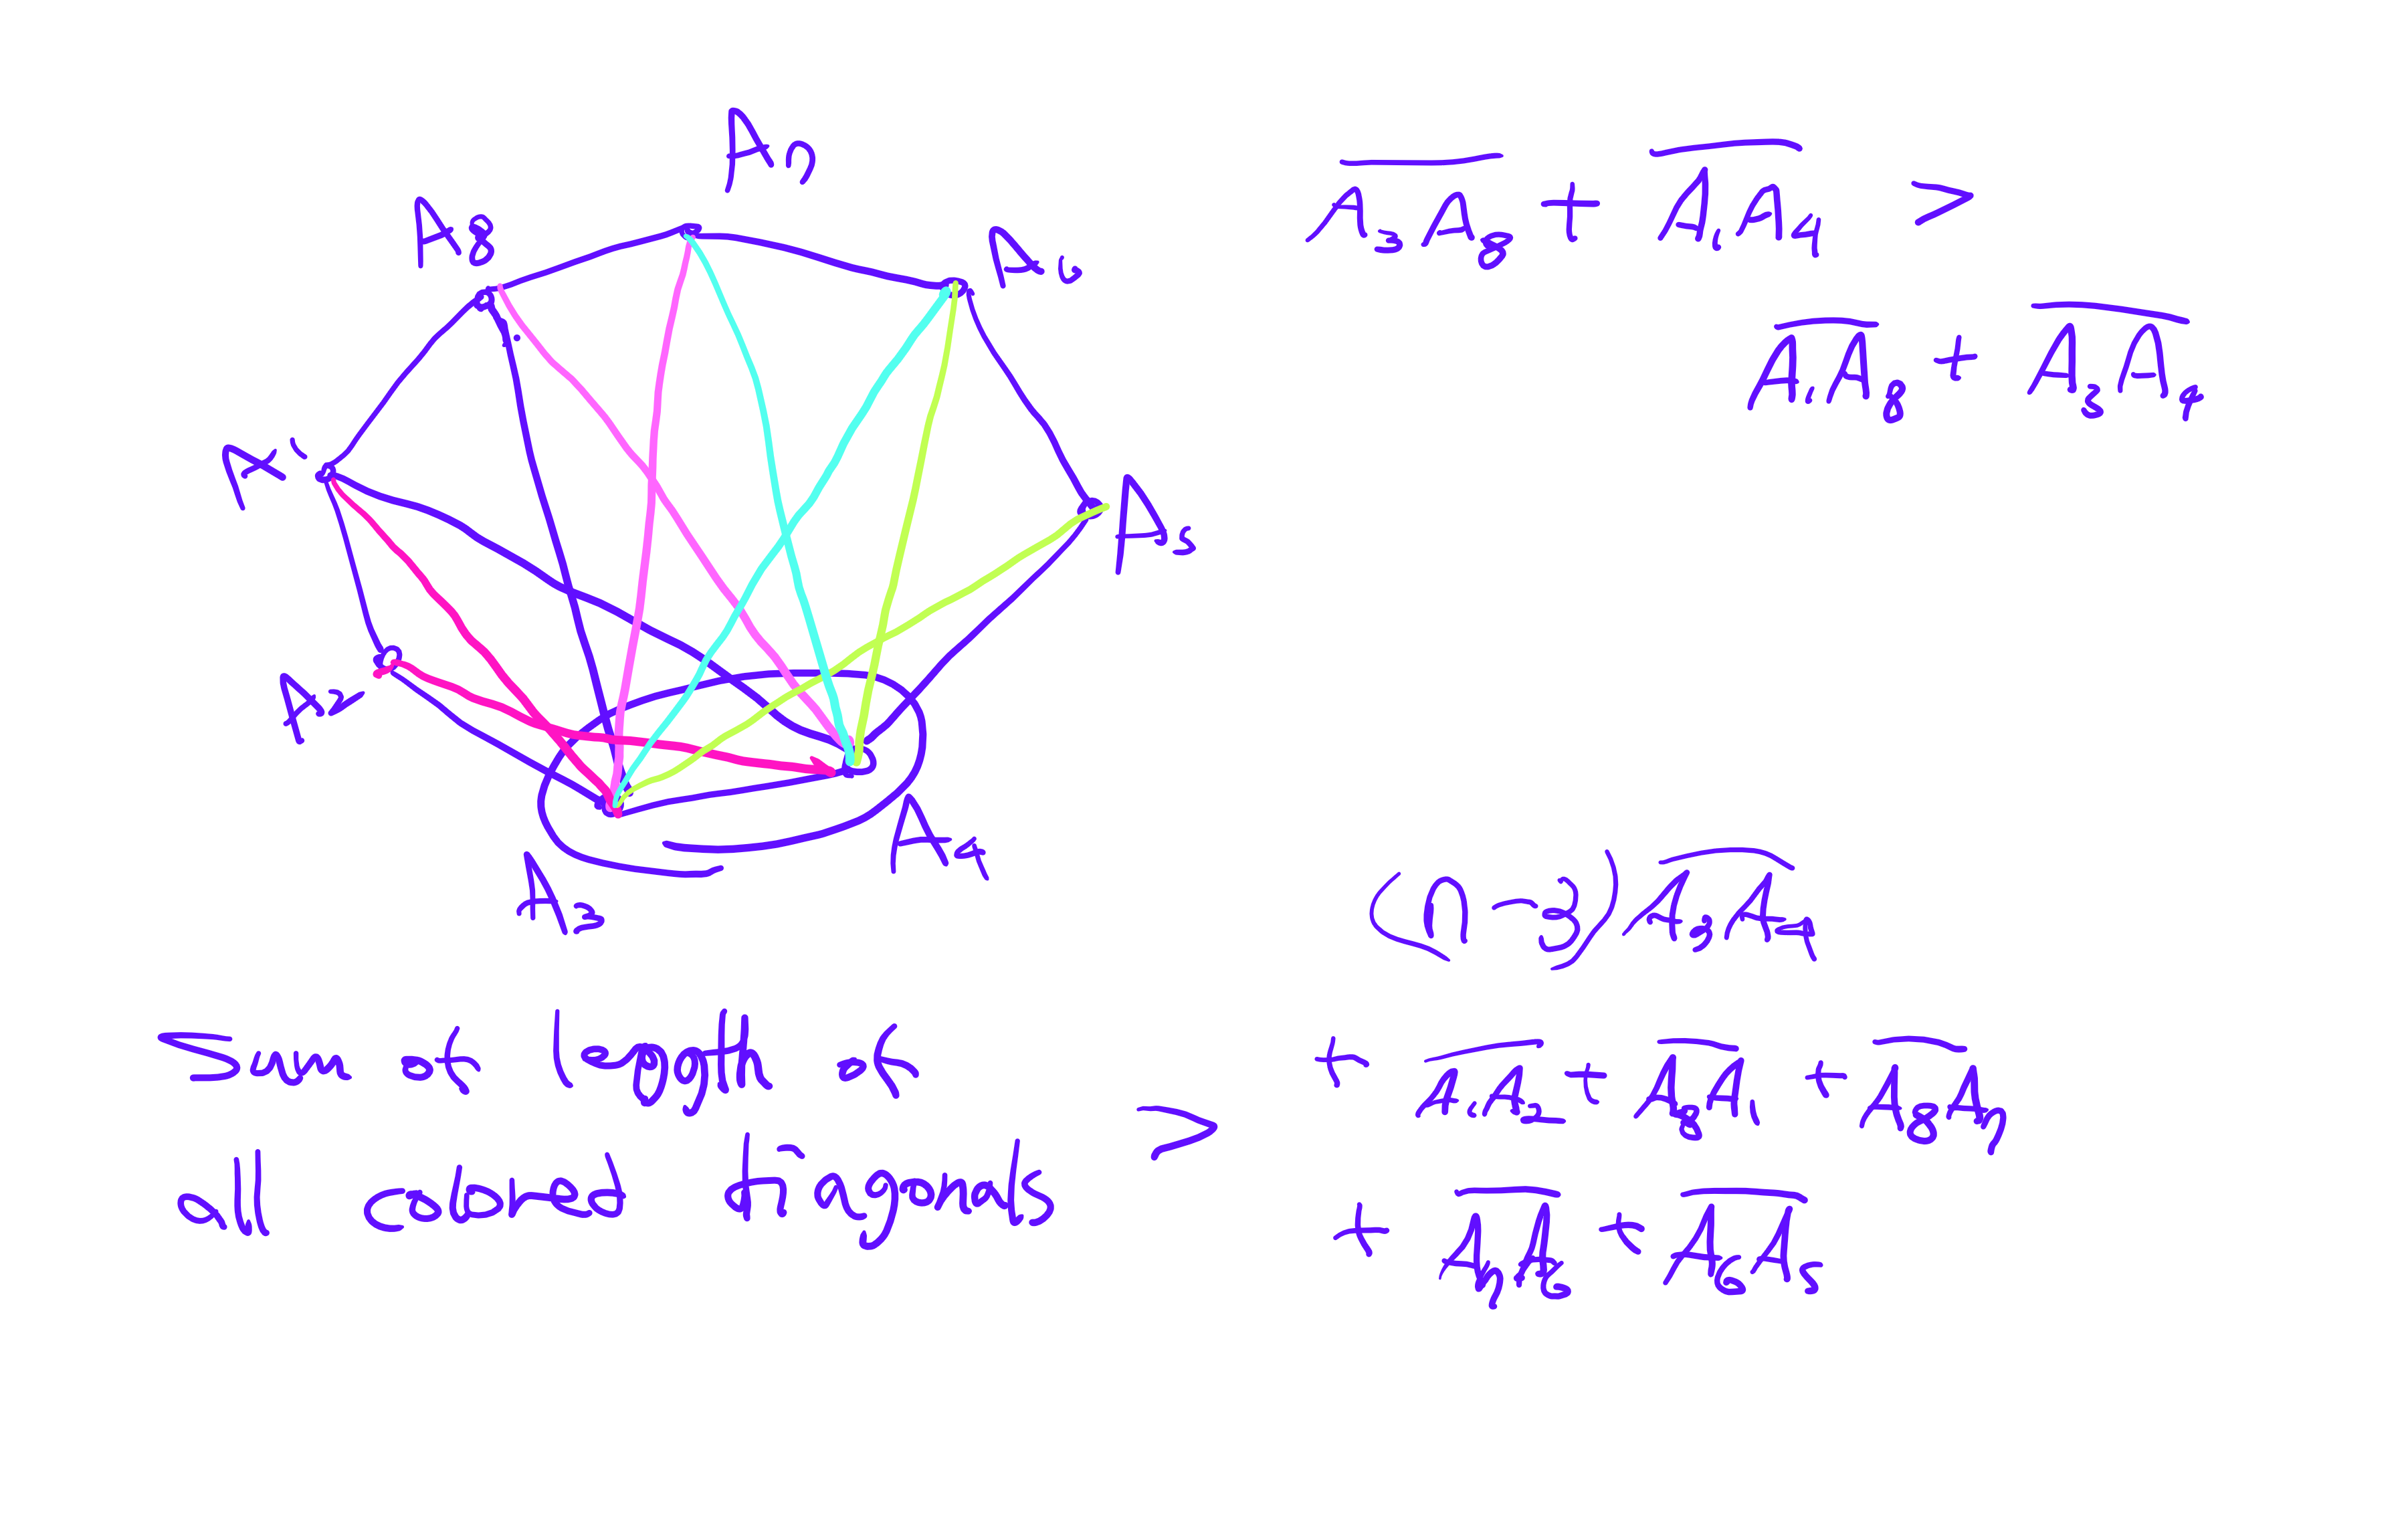 A₇
A₈
A₆
A₁
A₅
A₂
A₄
A₃
A₃A₈ + A₁A₄ >
A₁A₈ + A₃A₄
Sum of length of
all colored diagonals >
(n-3) A₃A₄
+ A₁A₂ + A₈A₁ + A₈A₇
+ A₇A₆ + A₆A₅